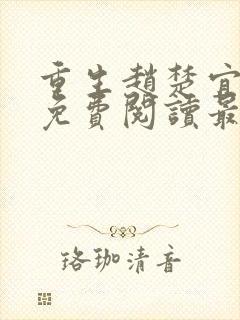 重生趙楚宜
免費閱讀最
珞珈清音